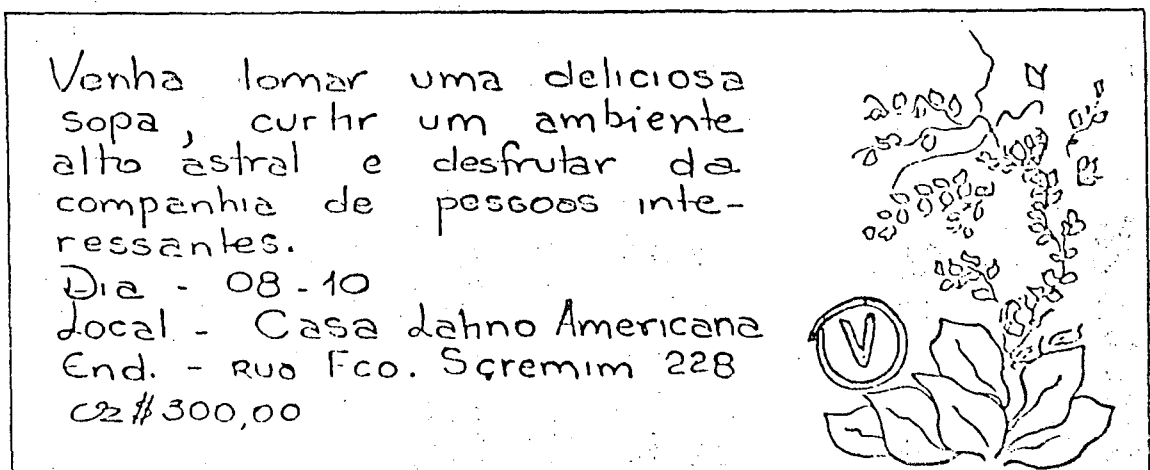 Venha tomar uma deliciosa
sopa, curtir um ambiente
alto astral e desfrutar da
companhia de pessoas inte-
ressantes.
Dia - 08-10
Local - Casa Latino Americana
End. - Rua Fco. Scremim 228
Cz$ 300,00
V